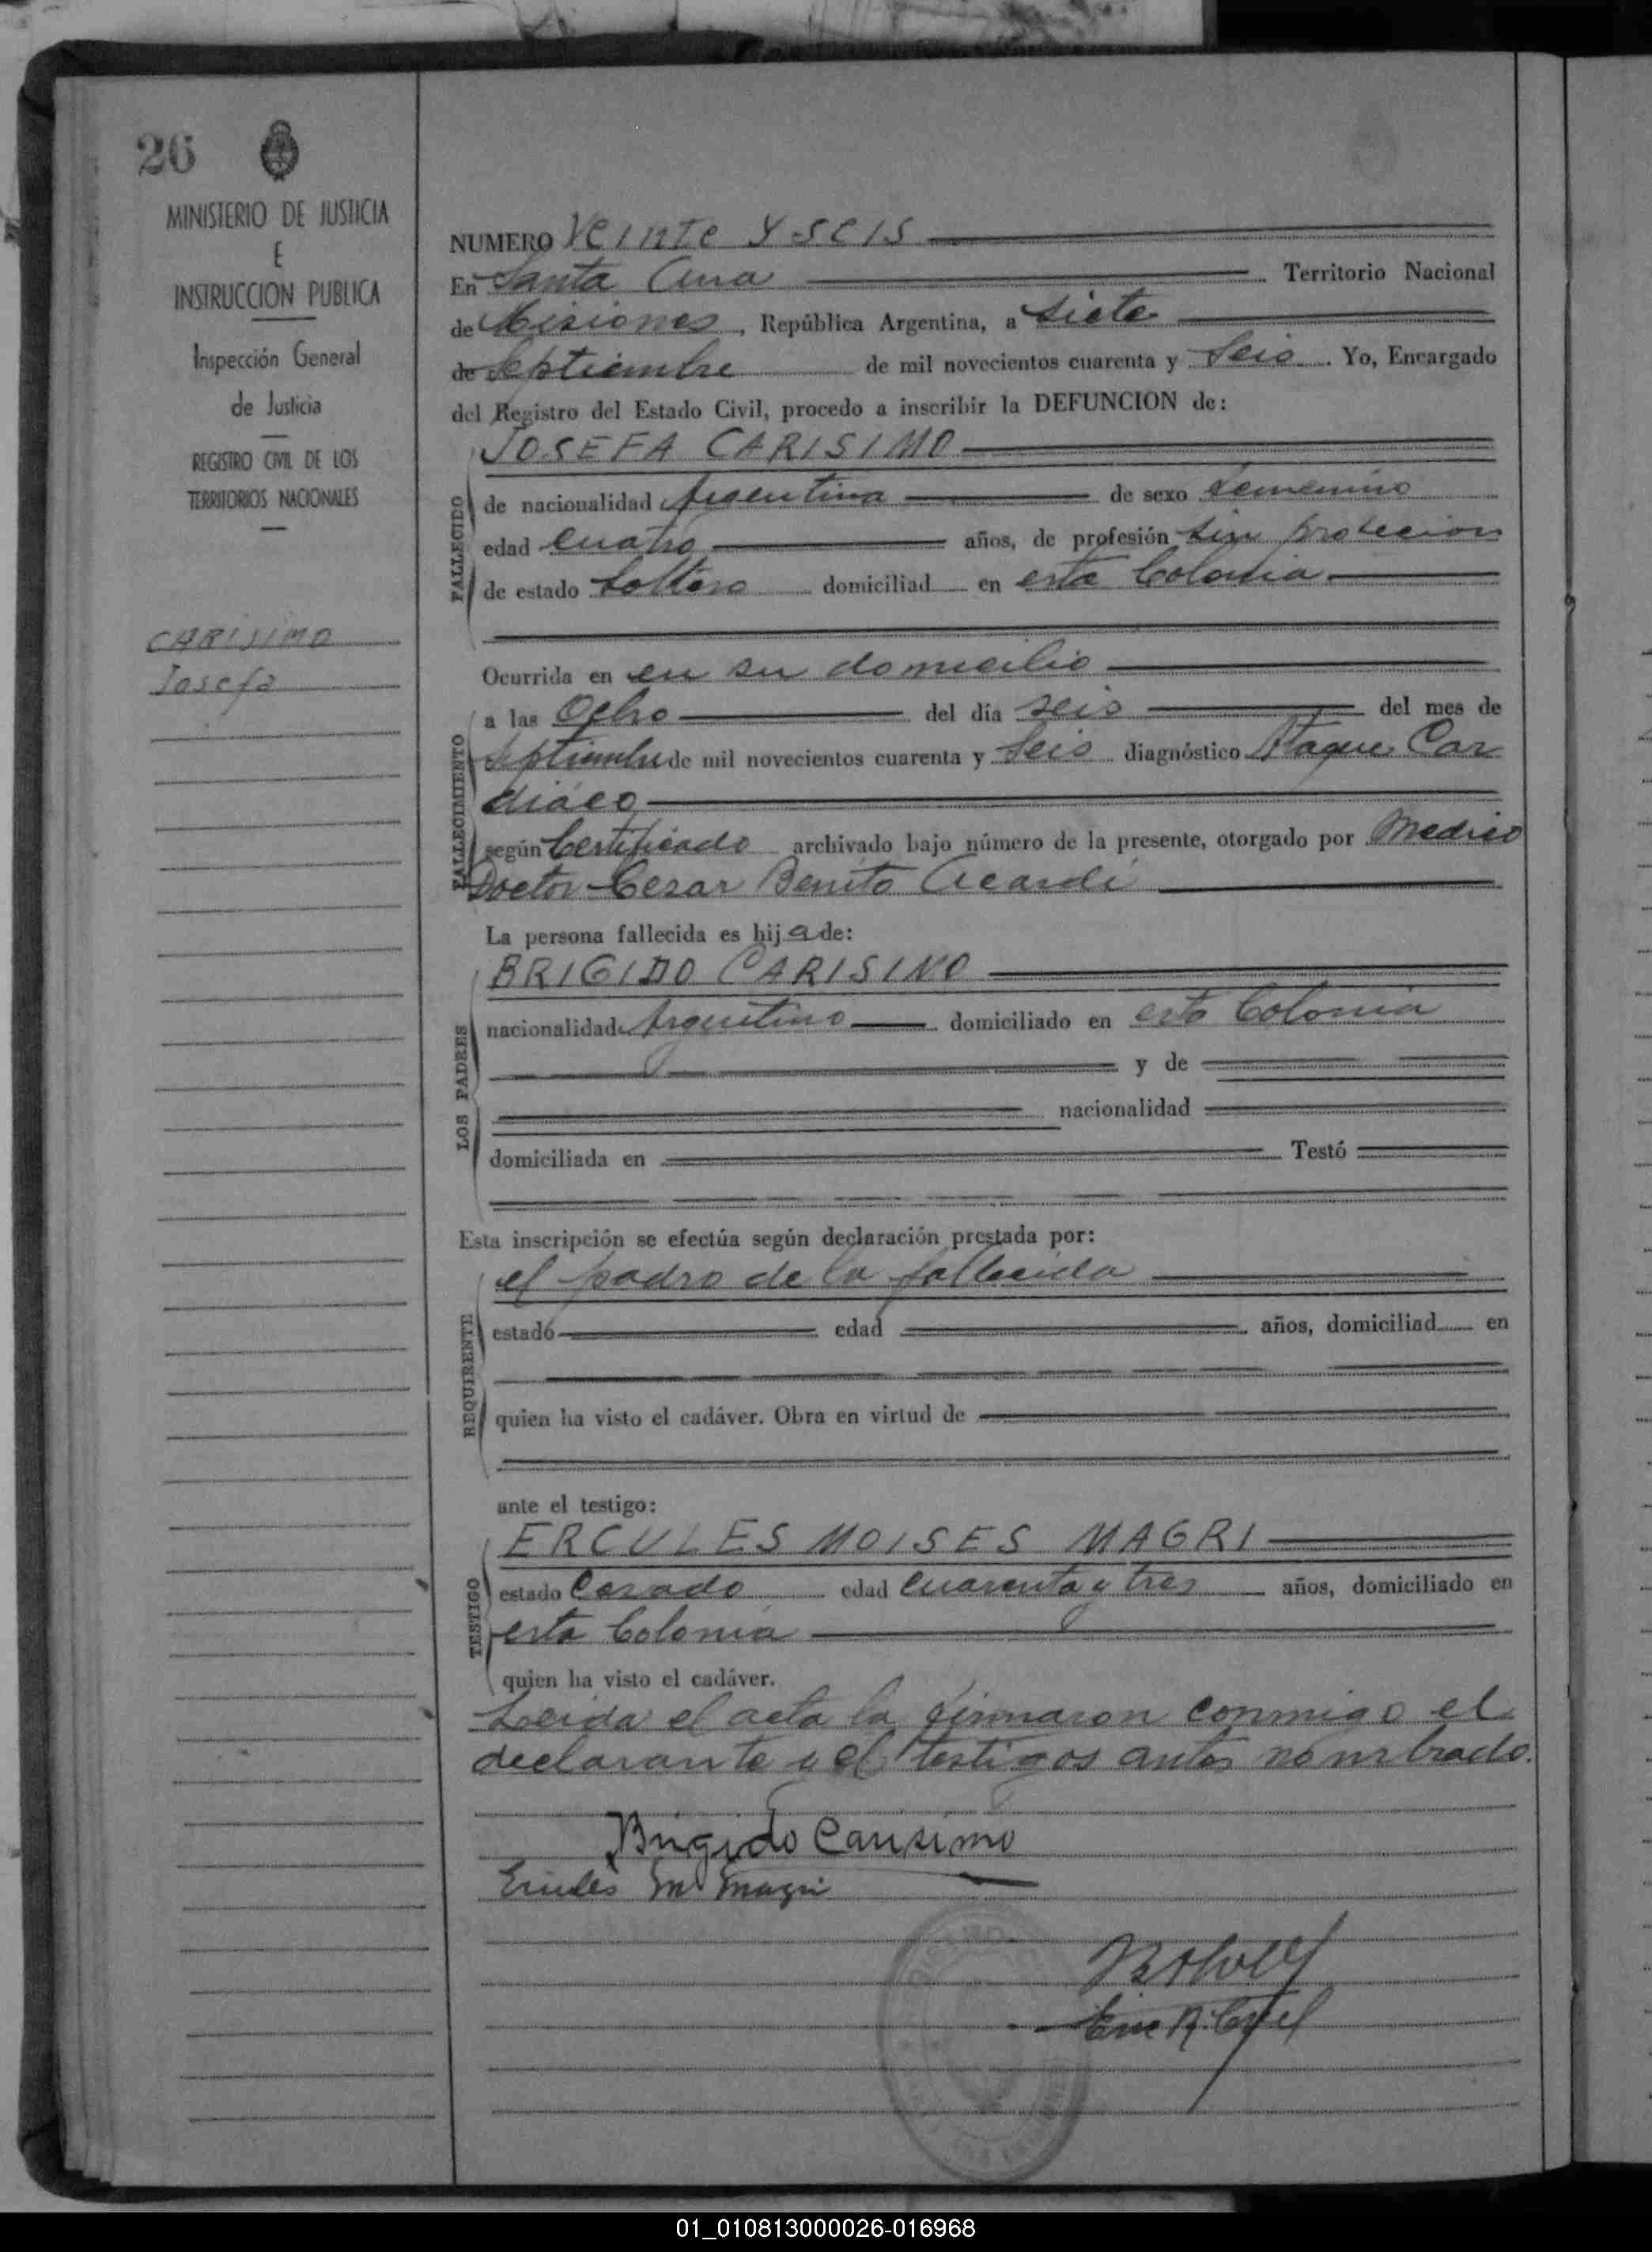 26
MINISTERIO DE JUSTICIA
E
INSTRUCCION PUBLICA
Inspección General
de Justicia
REGISTRO CIVIL DE LOS
TERRITORIOS NACIONALES
CARISIMO
Josefa
NUMERO Veinte y seis
En Santa Ana Territorio Nacional
de Misiones, República Argentina, a siete
de Septiembre de mil novecientos cuarenta y Seis. Yo, Encargado
del Registro del Estado Civil, procedo a inscribir la DEFUNCION de:
JOSEFA CARISIMO
FALLECIDO
de nacionalidad Argentina de sexo femenino
edad cuatro años, de profesión sin profecion
de estado Soltera domiciliad en esta Colonia
Ocurrida en en su domicilio
FALLECIMIENTO
a las Ocho del día seis del mes de
Septiembre de mil novecientos cuarenta y Seis diagnóstico Ataque Car
diaco
según Certificado archivado bajo número de la presente, otorgado por Medico
Doctor Cezar Benito Acardi
La persona fallecida es hija de:
LOS PADRES
BRIGIDO CARISIMO
nacionalidad Argentino domiciliado en esta Colonia
y de
nacionalidad
domiciliada en Testó
Esta inscripción se efectúa según declaración prestada por:
REQUIRENTE
el padre de la fallecida
estado edad años, domiciliad en
quien ha visto el cadáver. Obra en virtud de
ante el testigo:
TESTIGO
ERCULES MOISES MAGRI
estado Casado edad Cuarenta y tres años, domiciliado en
esta Colonia
quien ha visto el cadáver.
Leida el acta la firmaron conmigo el
declarante y el testigos antes nombrado.
Brigido Carisimo
Ercules M Magri